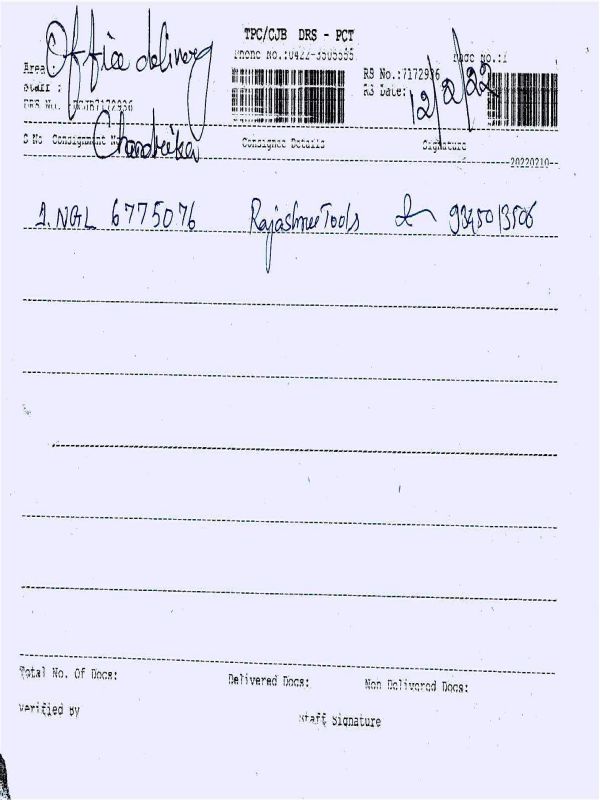 TPC/CJB DRS - PCT
Office delivery
Phone No.:0422-3505555
Page No.:1
Area
RS No.:7172936
Staff :
RS Date:
12/2/22
DRS No.
Chandrika
S No Consignment No
Consignee Details
Signature
20220210
1. NGL 6775076 Rajashree Tools 9345013506
Total No. Of Docs:
Delivered Docs:
Non Delivered Docs:
Verified By
Staff Signature